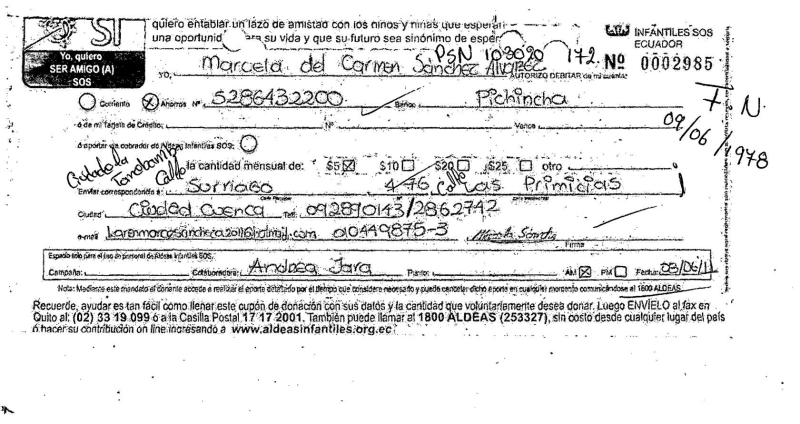 SI
quiero entablar un lazo de amistad con los niños y niñas que esperan
una oportunid ara su vida y que su futuro sea sinónimo de esper
INFANTILES SOS
ECUADOR
Yo, quiero
SER AMIGO (A)
SOS
PSN 103090 172.
Nº 0002985
YO, Marcela del Carmen Sánchez Alvarez AUTORIZO DEBITAR de mi cuenta:
Corriente Ahorros Nº 5286432200 Banco: Pichincha
7 N.
09/06/1978
ó de mi Tarjeta de Crédito: Nº Vence
ó aportar vía cobrador de Aldeas Infantiles SOS:
Ciudadela
Calle
la cantidad mensual de: $5 $10 $20 $25 otro
Enviar correspondencia a: 4-76 Calle Las Primicias
Ciudad Ciudad Cuenca Telf. 092890143/2862742
e-mail 010449875-3
Firma
Espacio solo para el uso de personal de Aldeas Infantiles SOS:
Campaña: Colaboradora: Andrea Jara Punto: AM PM Fecha: 08/06/11
Nota: Mediante este mandato el donante accede a realizar el aporte detallado por el tiempo que considere necesario y puede cancelar dicho aporte en cualquier momento comunicándose al 1800 ALDEAS.
Recuerde, ayudar es tan fácil como llenar este cupón de donación con sus datos y la cantidad que voluntariamente desea donar. Luego ENVÍELO al fax en
Quito al: (02) 33 19 099 ó a la Casilla Postal 17 17 2001. También puede llamar al 1800 ALDEAS (253327), sin costo desde cualquier lugar del país
ó hacer su contribución on line ingresando a www.aldeasinfantiles.org.ec